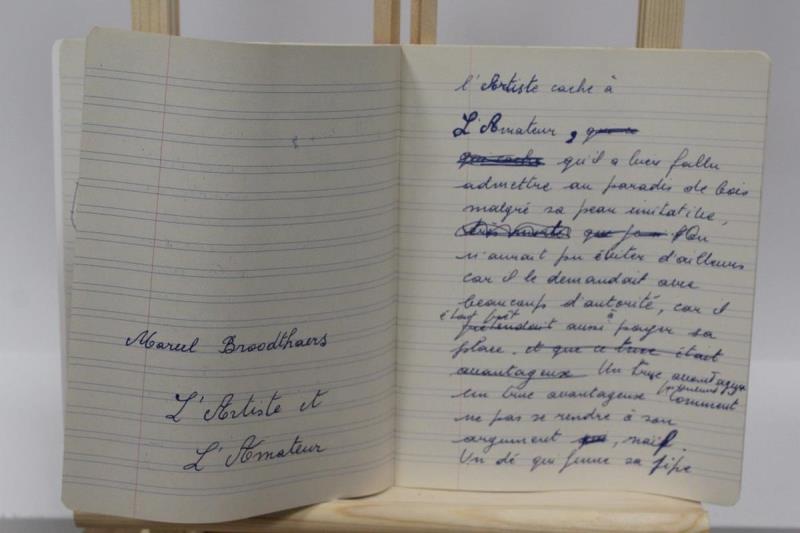 Marcel Broodthaers
L'Artiste et
L'Amateur
l'Artiste cache à
L'Amateur, que ce
qui cache qu'il a bien fallu
admettre au paradis de bois
malgré sa peau imitative,
que On
n'aurait pu éviter d'ailleurs
car il le demandait avec
beaucoup d'autorité, car il
était prêt à
prétendait aussi payer sa
place. et que ce truc était
avantageux Un truc avantageux
Un truc avantageux Comment
ne pas se rendre à son
argument que, naïf.
Un dé qui fume sa pipe